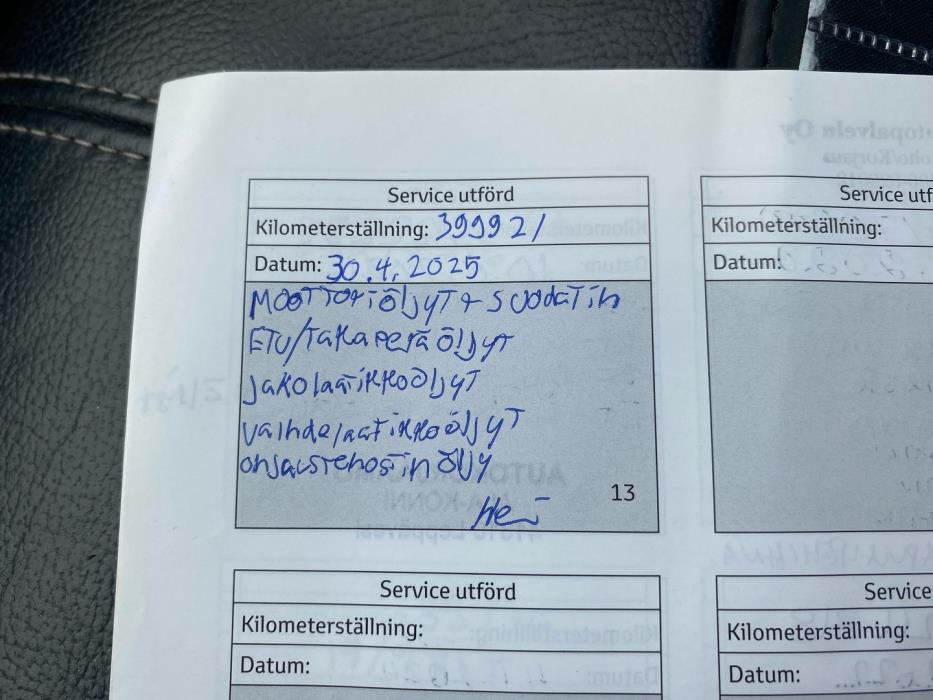 Service utförd
Kilometerställning: 399921
Datum: 30.4.2025
Moottoriöljyt + suodatin
Etu/takaperä öljyt
Jakolaatikkoöljyt
Vaihdelaatikkoöljyt
ohjaustehostin öljy
13
Service utf
Kilometerställning:
Datum:
Service utförd
Kilometerställning:
Datum:
Service
Kilometerställning:
Datum: